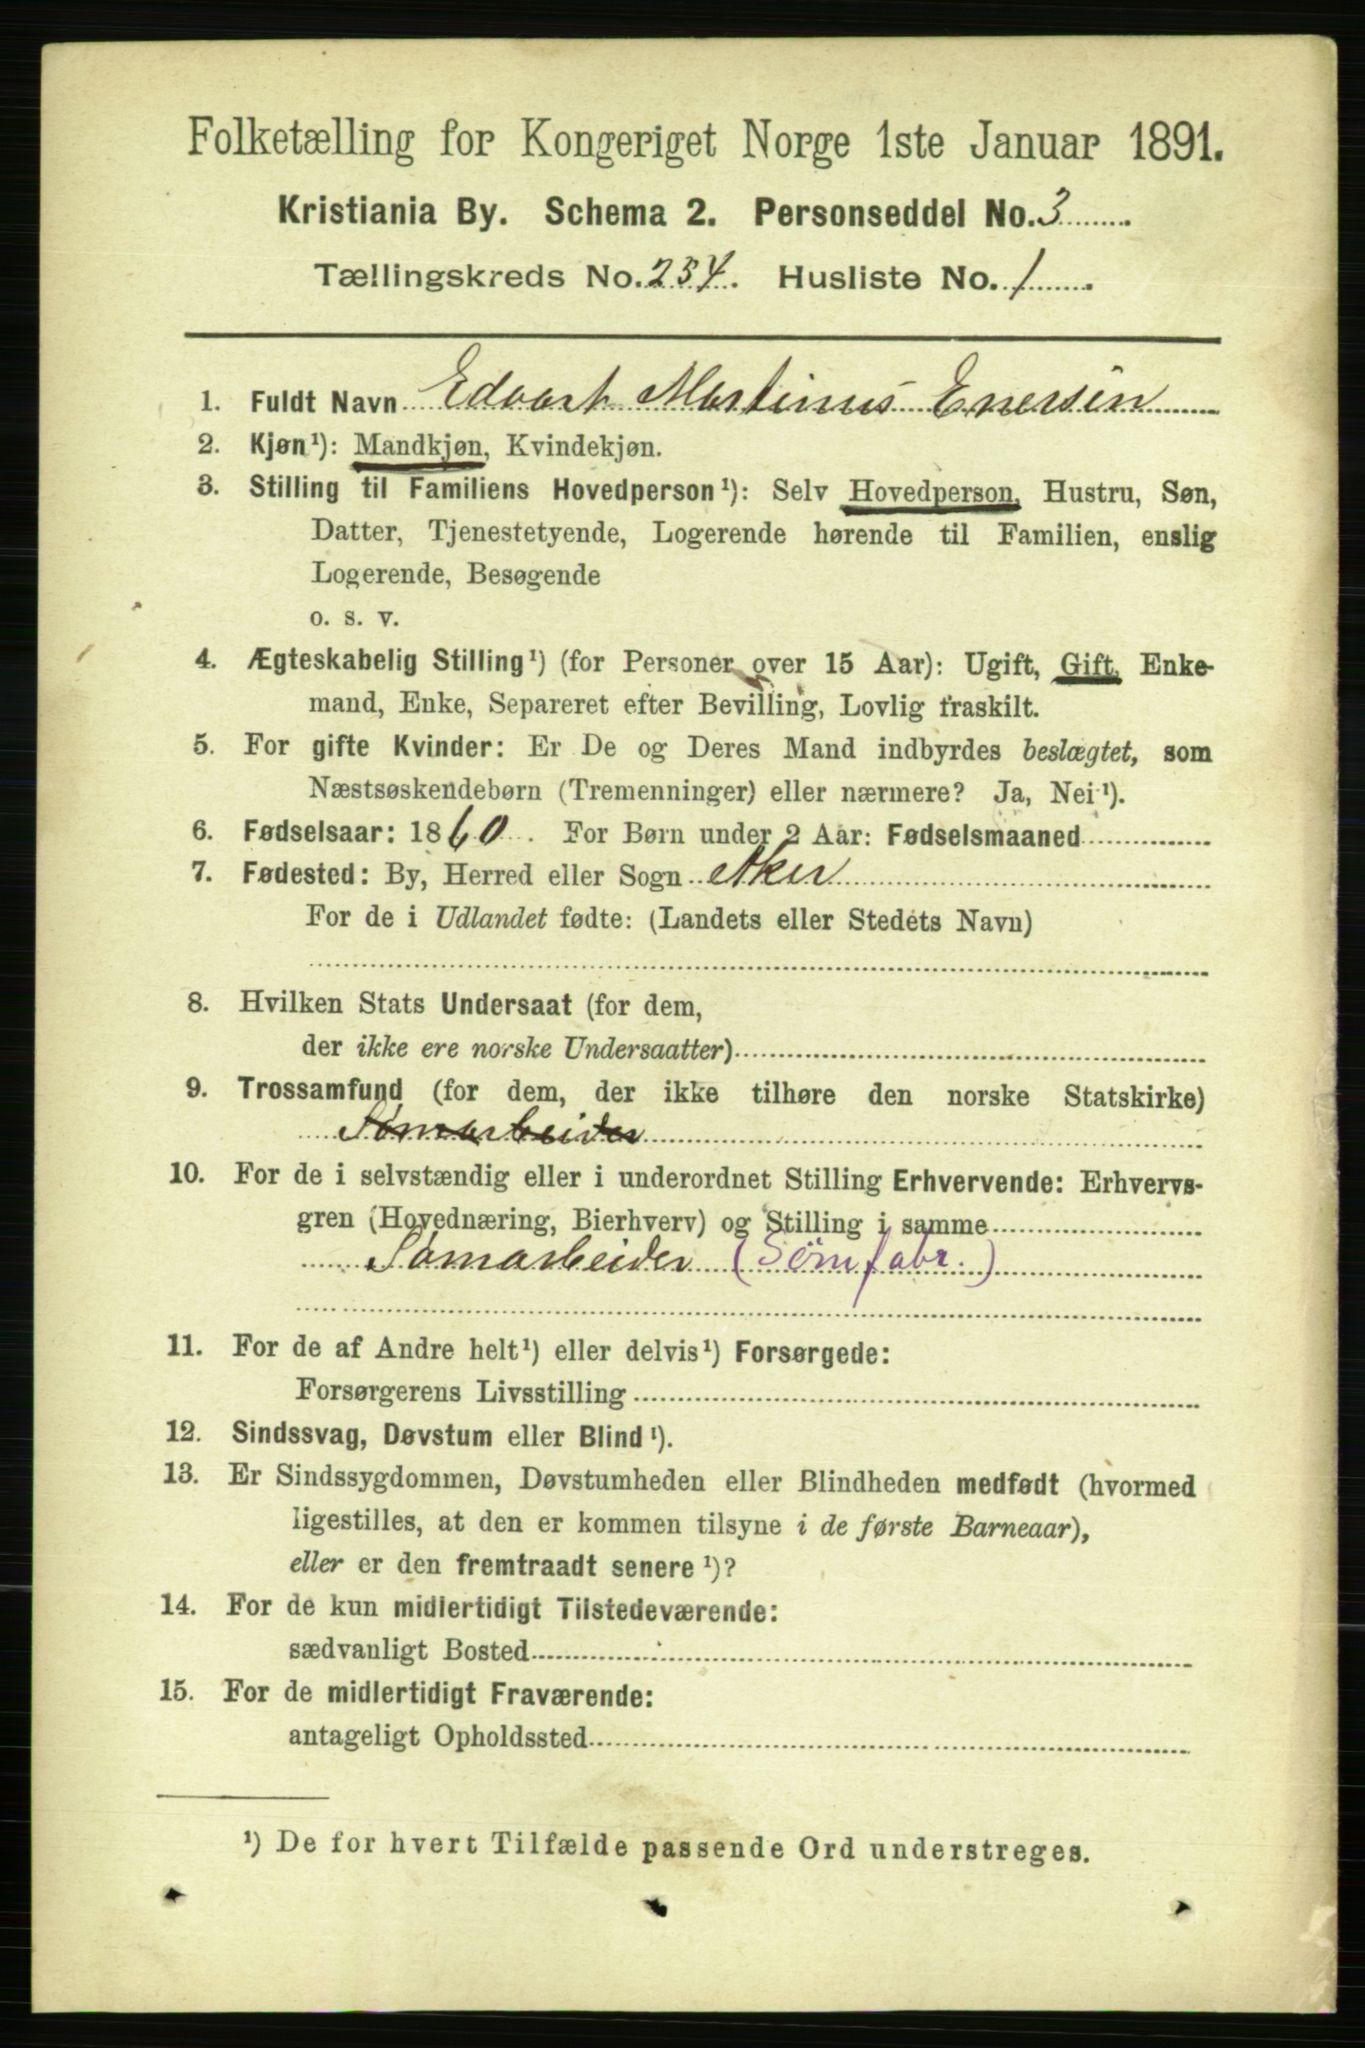 Folketælling for Kongeriget Norge 1ste Januar 1891.
Kristiania By. Schema 2. Personseddel No. 3
Tællingskreds No. 234. Husliste No. 1
1. Fuldt Navn Edvart Martinus Enersen
2. Kjøn¹): Mandkjøn, Kvindekjøn.
3. Stilling til Familiens Hovedperson¹): Selv Hovedperson, Hustru, Søn,
Datter, Tjenestetyende, Logerende hørende til Familien, enslig
Logerende, Besøgende
o. s. v.
4. Ægteskabelig Stilling¹) (for Personer over 15 Aar): Ugift, Gift, Enke-
mand, Enke, Separeret efter Bevilling, Lovlig fraskilt.
5. For gifte Kvinder: Er De og Deres Mand indbyrdes beslægtet, som
Næstsøskendebørn (Tremenninger) eller nærmere? Ja, Nei¹).
6. Fødselsaar: 1860. For Børn under 2 Aar: Fødselsmaaned
7. Fødested: By, Herred eller Sogn Aker
For de i Udlandet fødte: (Landets eller Stedets Navn)
8. Hvilken Stats Undersaat (for dem,
der ikke ere norske Undersaatter)
9. Trossamfund (for dem, der ikke tilhøre den norske Statskirke)
Sømarbeider
10. For de i selvstændig eller i underordnet Stilling Erhvervende: Erhvervs-
gren (Hovednæring, Bierhverv) og Stilling i samme
Sømarbeider (Sömfabr.)
11. For de af Andre helt¹) eller delvis¹) Forsørgede:
Forsørgerens Livsstilling
12. Sindssvag, Døvstum eller Blind¹).
13. Er Sindssygdommen, Døvstumheden eller Blindheden medfødt (hvormed
ligestilles, at den er kommen tilsyne i de første Barneaar),
eller er den fremtraadt senere¹)?
14. For de kun midlertidigt Tilstedeværende:
sædvanligt Bosted
15. For de midlertidigt Fraværende:
antageligt Opholdssted
¹) De for hvert Tilfælde passende Ord understreges.